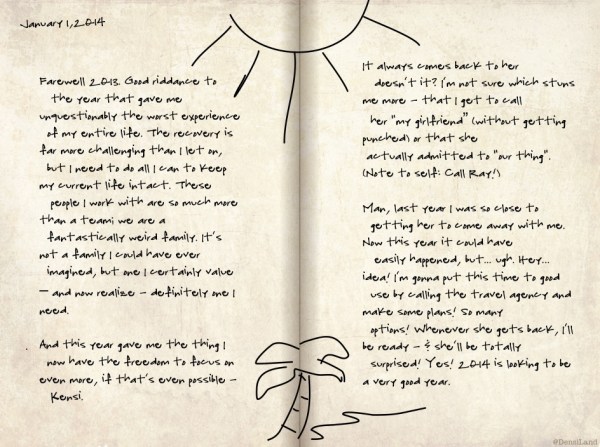 January 1, 2014
Farewell 2013. Good riddance to
the year that gave me
unquestionably the worst experience
of my entire life. The recovery is
far more challenging than I let on,
but I need to do all I can to keep
my current life intact. These
people I work with are so much more
than a team; we are a
fantastically weird family. It's
not a family I could have ever
imagined, but one I certainly value
– and now realize – definitely one I
need.
And this year gave me the thing I
now have the freedom to focus on
even more, if that's even possible –
Kensi.
It always comes back to her
doesn't it? I'm not sure which stuns
me more – that I get to call
her "my girlfriend" (without getting
punched) or that she
actually admitted to "our thing".
(Note to self: Call Ray!)
Man, last year I was so close to
getting her to come away with me.
Now this year it could have
easily happened, but... ugh. Hey...
idea! I'm gonna put this time to good
use by calling the travel agency and
make some plans! So many
options! Whenever she gets back, I'll
be ready – & she'll be totally
surprised! Yes! 2014 is looking to be
a very good year.
@DensiLand